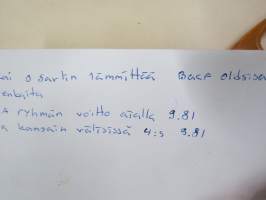 ai Osartin lämmittää Baef oldsisen
enkaita
A ryhmän voitto aialla 9.81
a kansain välisissä 4:s 9.81